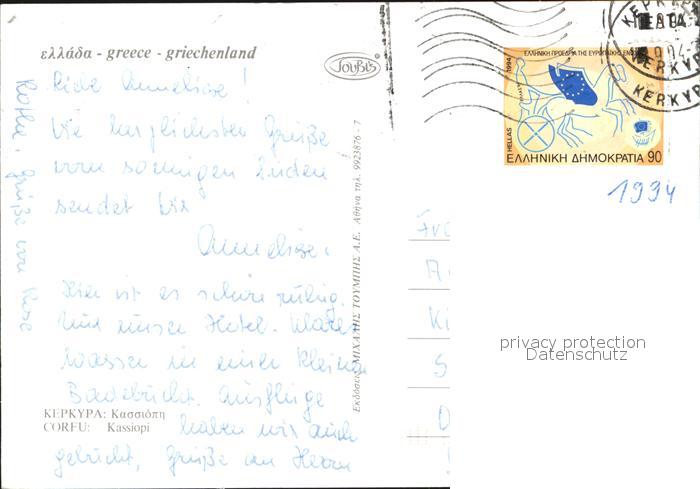 ελλάδα - greece - griechenland
Τουβι'ς
Liebe Anneliese!
Die herzlichsten Grüße
vom sonnigen Süden
sendet Dir
Anneliese.
Hier ist es schön ruhig.
Und unser Hotel. Klares
Wasser in einer kleinen
Badebucht. Ausflüge
ΚΕΡΚΥΡΑ: Κασσιόπη
CORFU: Kassiopi
haben wir auch
gebucht, Grüße an Herrn
Grüße von
Εκδόσεις ΜΙΧΑΛΗΣ ΤΟΥΜΠΗΣ Α.Ε. Αθήνα τηλ. 9923876 - 7
ΚΕΡΚΥΡ
ΚΕΡΚΥΡ
ΕΛΛΗΝΙΚΗ ΠΡΟΕΔΡΙΑ ΤΗΣ ΕΥΡΩΠΑΪΚΗΣ ΕΝΩΣ
1994
HELLAS
ΕΛΛΗΝΙΚΗ ΔΗΜΟΚΡΑΤΙΑ 90
1994
privacy protection
Datenschutz